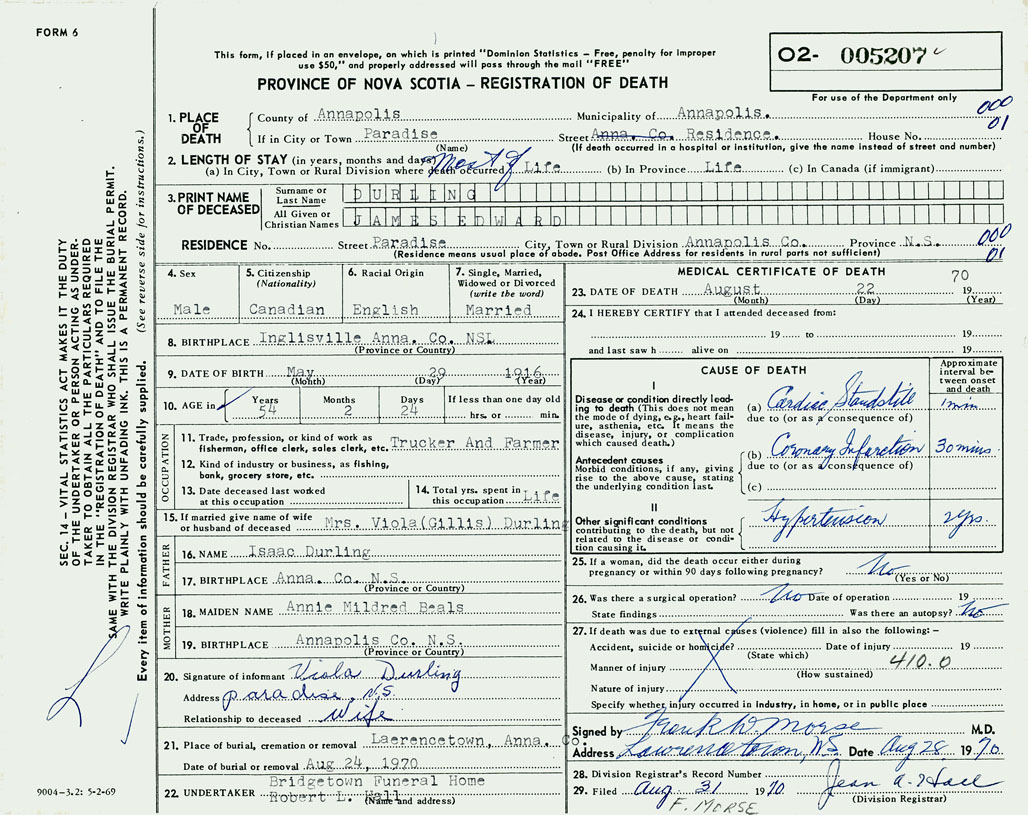 FORM 6
This form, if placed in an envelope, on which is printed "Dominion Statistics – Free, penalty for improper
use $50," and properly addressed will pass through the mail "FREE"
PROVINCE OF NOVA SCOTIA – REGISTRATION OF DEATH
O2- 005207
For use of the Department only
000
01
1. PLACE OF DEATH
County of Annapolis Municipality of Annapolis.
If in City or Town Paradise Street Anna. Co. Residence. House No.
(Name) (If death occurred in a hospital or institution, give the name instead of street and number)
2. LENGTH OF STAY (in years, months and days)
(a) In City, Town or Rural Division where death occurred most of Life (b) In Province Life (c) In Canada (if immigrant)
3. PRINT NAME OF DECEASED
Surname or Last Name DURLING
All Given or Christian Names JAMES EDWARD
RESIDENCE No. Street Paradise City, Town or Rural Division Annapolis Co. Province N.S.
(Residence means usual place of abode. Post Office Address for residents in rural parts not sufficient)
000
01
4. Sex
Male
5. Citizenship
(Nationality)
Canadian
6. Racial Origin
English
7. Single, Married,
Widowed or Divorced
(write the word)
Married
8. BIRTHPLACE Inglisville Anna. Co. NSL
(Province or Country)
9. DATE OF BIRTH May 29 1916
(Month) (Day) (Year)
10. AGE in
Years Months Days If less than one day old
54 2 24 hrs. or min.
OCCUPATION
11. Trade, profession, or kind of work as
fisherman, office clerk, sales clerk, etc. Trucker And Farmer
12. Kind of industry or business, as fishing,
bank, grocery store, etc.
13. Date deceased last worked
at this occupation
14. Total yrs. spent in
this occupation Life
15. If married give name of wife
or husband of deceased Mrs. Viola(Gillis) Durling
FATHER
16. NAME Isaac Durling
17. BIRTHPLACE Anna. Co. N.S.
(Province or Country)
MOTHER
18. MAIDEN NAME Annie Mildred Beals
19. BIRTHPLACE Annapolis Co. N.S.
(Province or Country)
20. Signature of informant Viola Durling
Address paradise, N.S.
Relationship to deceased wife
21. Place of burial, cremation or removal Laerencetown, Anna. Co.
Date of burial or removal Aug 24, 1970
22. UNDERTAKER Bridgetown Funeral Home
Robert L. Hall
(Name and address)
MEDICAL CERTIFICATE OF DEATH
23. DATE OF DEATH August 22 19 70
(Month) (Day) (Year)
24. I HEREBY CERTIFY that I attended deceased from:
19 ... to 19
and last saw h alive on 19
CAUSE OF DEATH
Approximate
interval be-
tween onset
and death
I
Disease or condition directly lead-
ing to death (This does not mean
the mode of dying, e.g., heart fail-
ure, asthenia, etc. It means the
disease, injury, or complication
which caused death.)
(a) Cardiac Standstile 1 min
due to (or as a consequence of)
Antecedent causes
Morbid conditions, if any, giving
rise to the above cause, stating
the underlying condition last.
(b) Coronary Infarction 30 mins.
due to (or as a consequence of)
(c)
II
Other significant conditions
contributing to the death, but not
related to the disease or condi-
tion causing it.
Hypertension 2 yrs.
25. If a woman, did the death occur either during
pregnancy or within 90 days following pregnancy? No
(Yes or No)
26. Was there a surgical operation? No Date of operation 19
State findings Was there an autopsy? No
27. If death was due to external causes (violence) fill in also the following: –
Accident, suicide or homicide? Date of injury 19
(State which)
Manner of injury 410.0
(How sustained)
Nature of injury
Specify whether injury occurred in industry, in home, or in public place
Signed by Frank W Morse M.D.
Address Lawrencetown, NS Date Aug 28 1970
28. Division Registrar's Record Number
29. Filed Aug 31 1970 Jean A. Hall
(Division Registrar)
F. MORSE
SEC. 14 – VITAL STATISTICS ACT MAKES IT THE DUTY
OF THE UNDERTAKER OR PERSON ACTING AS UNDER-
TAKER TO OBTAIN ALL THE PARTICULARS REQUIRED
IN THE "REGISTRATION OF DEATH" AND TO FILE THE
SAME WITH THE DIVISION REGISTRAR WHO SHALL ISSUE THE BURIAL PERMIT.
WRITE PLAINLY WITH UNFADING INK. THIS IS A PERMANENT RECORD.
Every item of information should be carefully supplied. (See reverse side for instructions.)
9004-3.2: 5-2-69